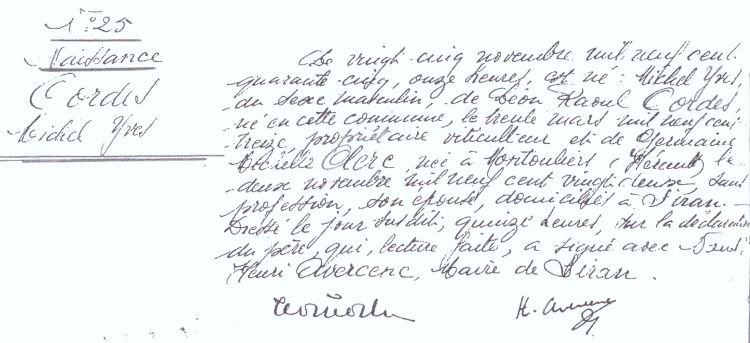 N° 25
Naissance
Cordes
Michel Yves
Le vingt cinq novembre mil neuf cent
quarante cinq, onze heures, est né : Michel Yves,
du sexe masculin, de Léon Raoul Cordes,
né en cette commune, le trente mars mil neuf cent
treize, propriétaire viticulteur et de Germaine
Clerc, née à Montouliers (Hérault) le
deux novembre mil neuf cent vingt deux, sans
profession, son épouse, domiciliés à Siran. —
Dressé le jour susdit, quinze heures, sur la déclaration
du père, qui, lecture faite, a signé avec Nous,
Henri Avercenc, Maire de Siran.
H.